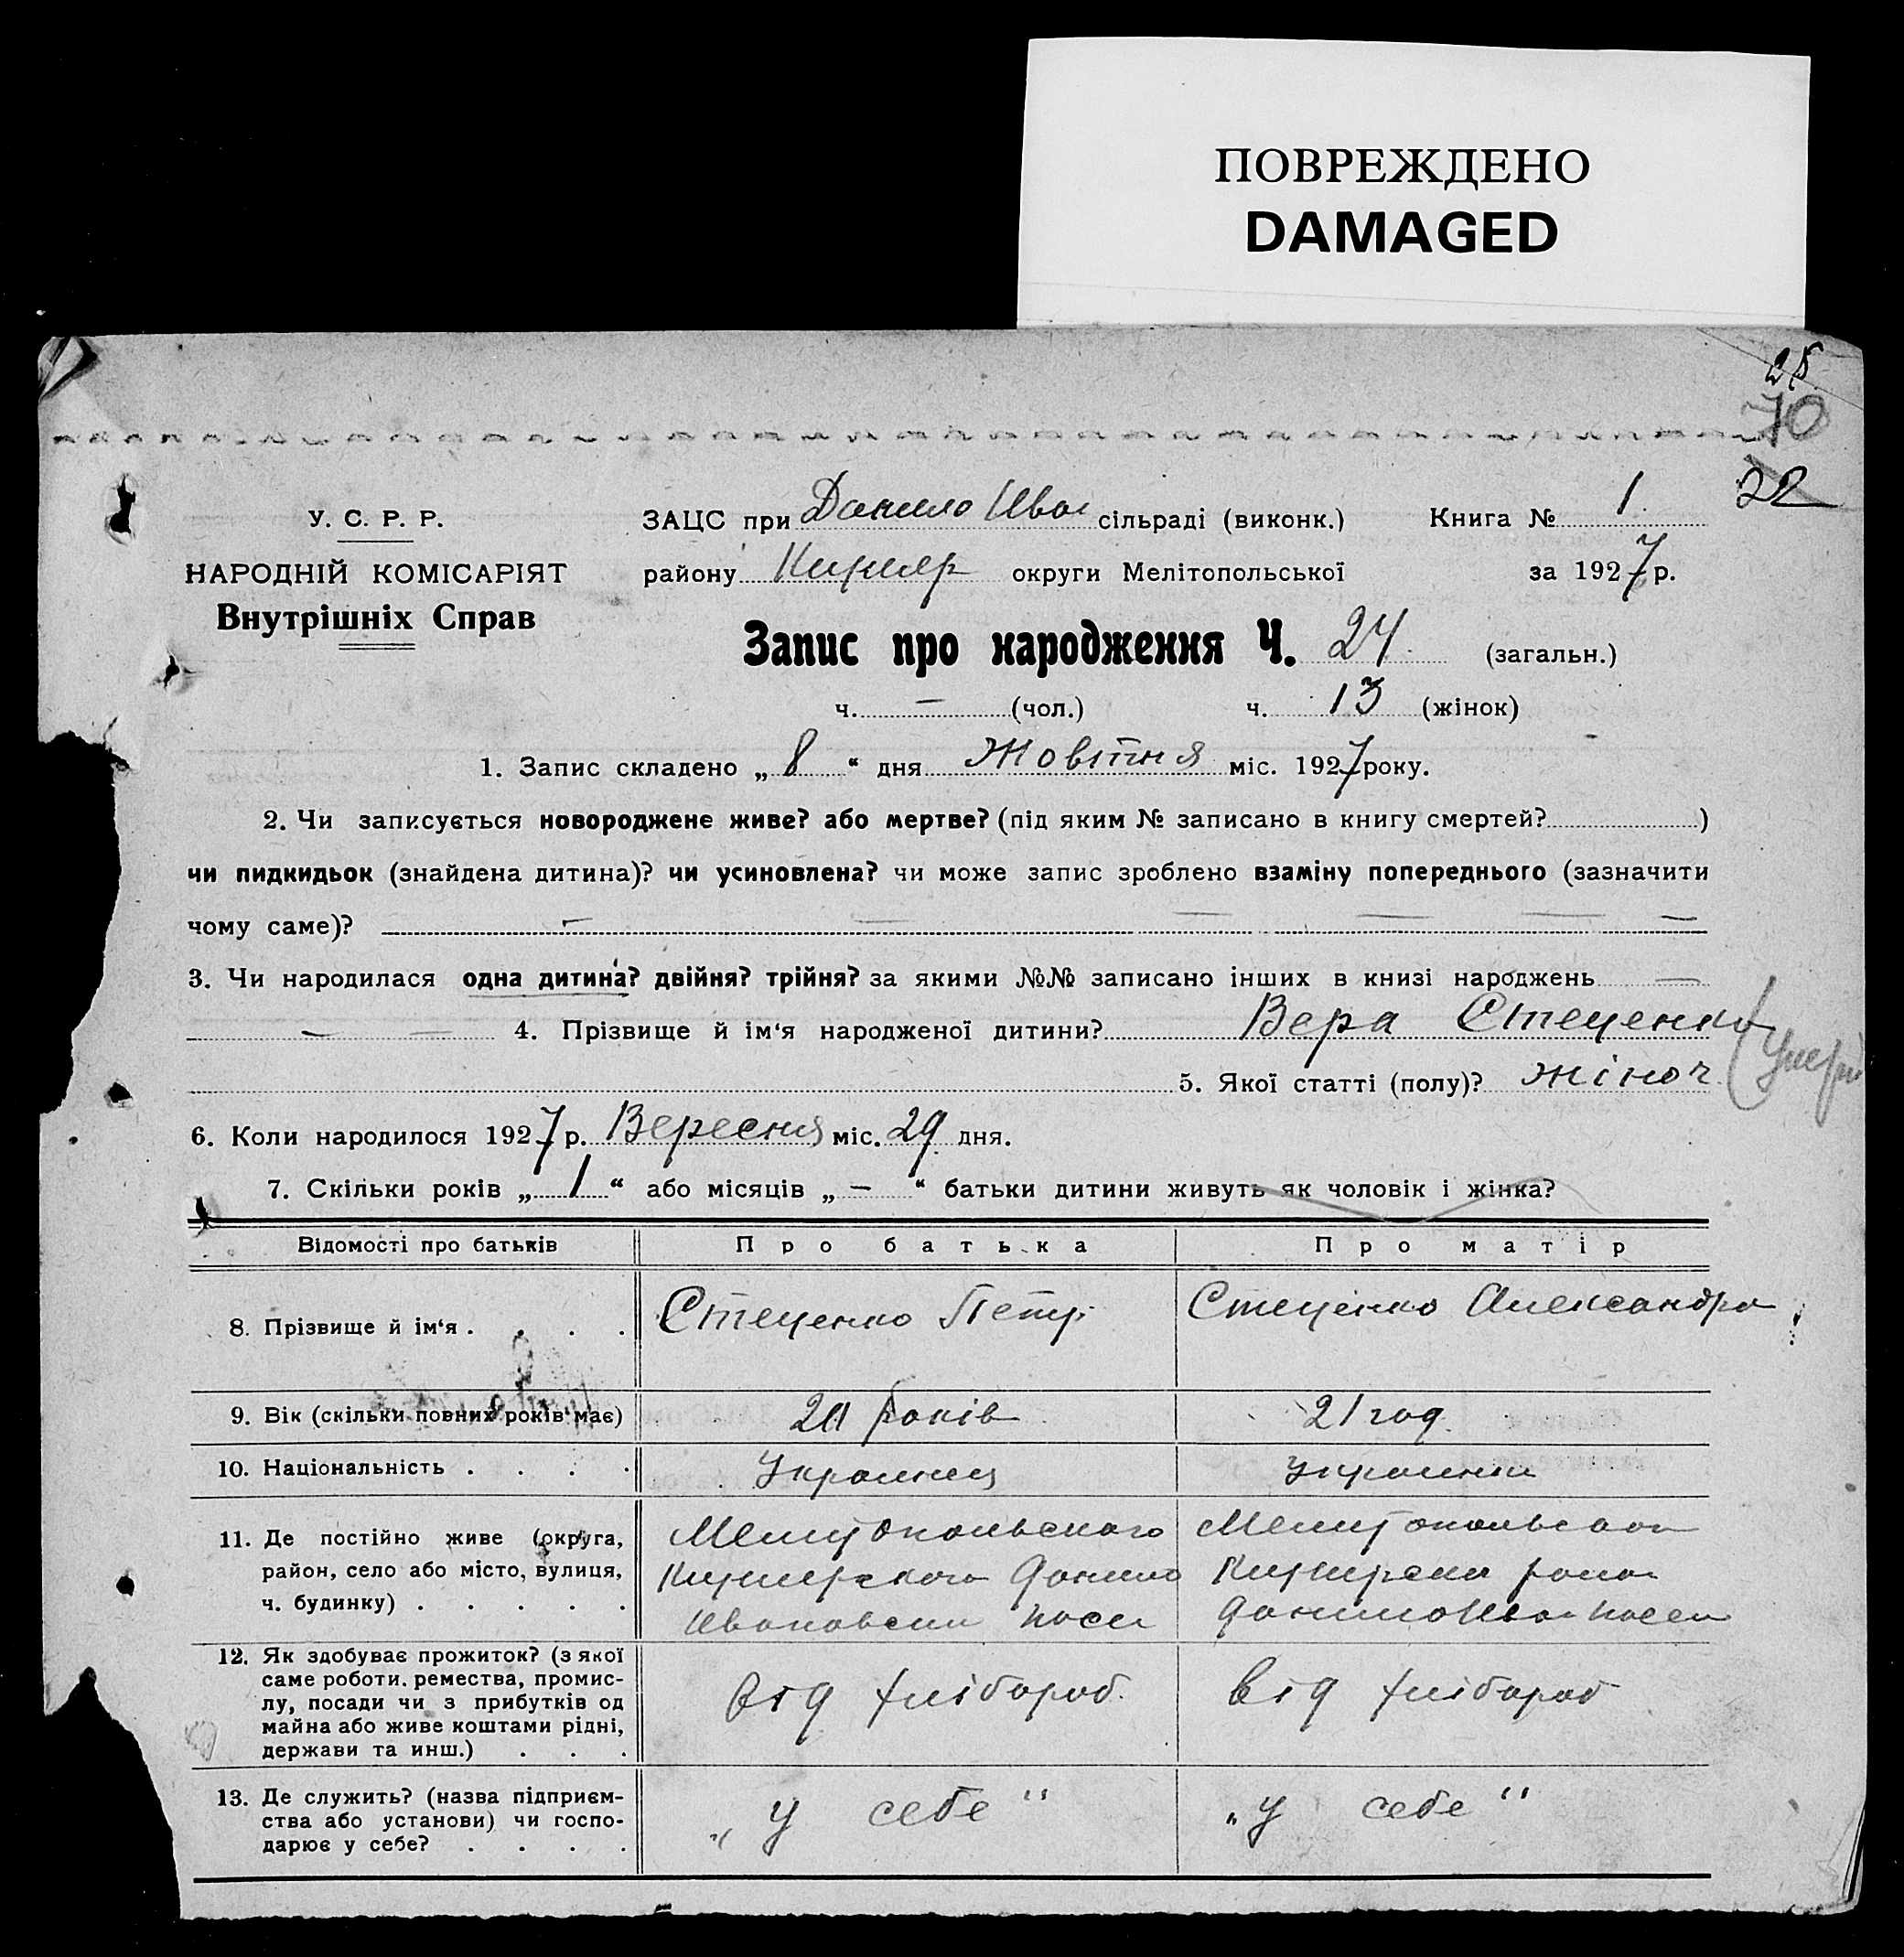 ПОВРЕЖДЕНО
DAMAGED
70
22
У. С. Р. Р.
НАРОДНІЙ КОМІСАРІЯТ
Внутрішніх Справ
ЗАЦС при Данило Ива сільраді (виконк.) Книга № 1
району округи Мелітопольської за 1927 р.
Запис про народження Ч. 24 (загальн.)
ч. — (чол.) ч. 13 (жінок)
1. Запис складено „ 8 “ дня Жовтня міс. 1927 року.
2. Чи записується новороджене живе? або мертве? (під яким № записано в книгу смертей? )
чи пидкидьок (знайдена дитина)? чи усиновлена? чи може запис зроблено взаміну попереднього (зазначити
чому саме)? — — — — — —
3. Чи народилася одна дитина? двійня? трійня? за якими №№ записано інших в книзі народжень —
— — 4. Прізвище й ім‘я народженої дитини? Вера Стеценко
5. Якої статті (полу)? жіноч
6. Коли народилося 1927 р. Вересня міс. 29 дня.
7. Скільки років „ 1 “ або місяців „ — “ батьки дитини живуть як чоловік і жінка?
Відомості про батьків Про батька Про матір
8. Прізвище й ім‘я . . . . Стеценко Петр Стеценко Александра
9. Вік (скільки повних років має) років 21 год.
10. Національність . . . . Украинец украинка
11. Де постійно живе (округа,
район, село або місто, вулиця,
ч. будинку) . . . . .
Мелитопольского
Данило
Ивановски
12. Як здобуває прожиток? (з якої
саме роботи, ремества, промис-
лу, посади чи з прибутків од
майна або живе коштами рідні,
держави та инш.) . . .
від хлібороб. від хлібороб
13. Де служить? (назва підприєм-
ства або установи) чи госпо-
дарює у себе? . . . .
„ у себе “ „ у себе “